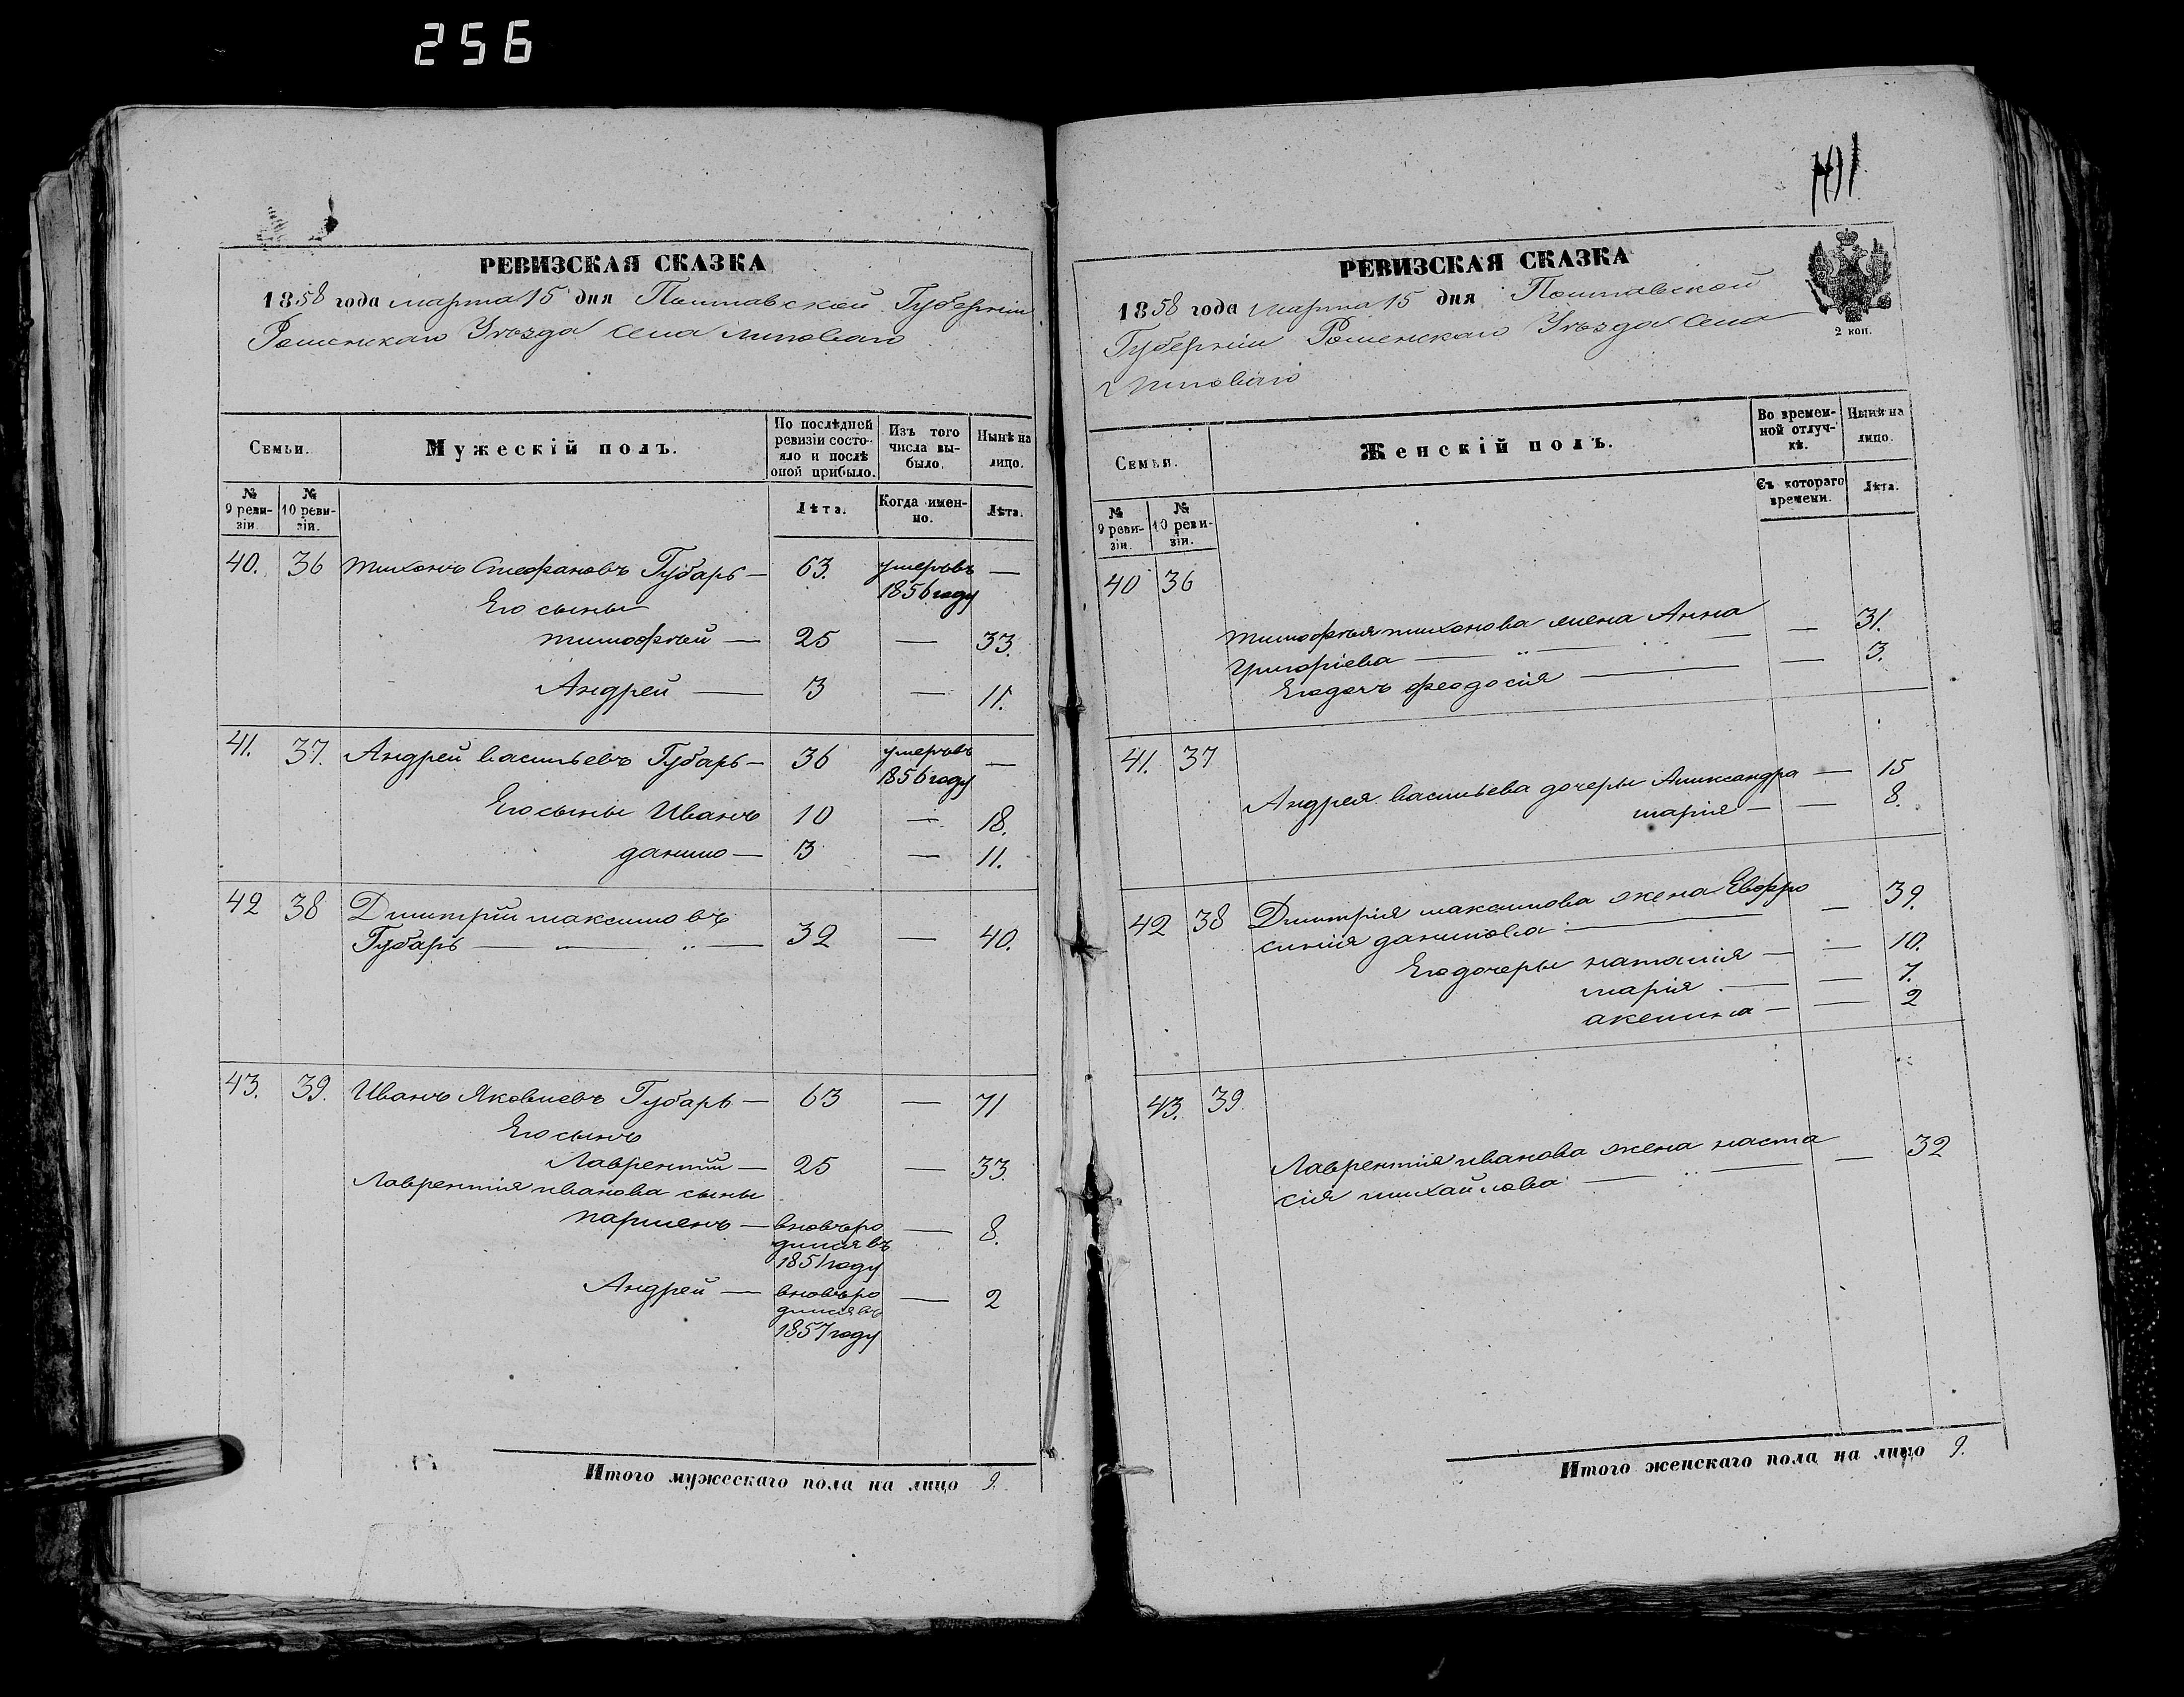 256
РЕВИЗСКАЯ СКАЗКА
1858 года марта 15 дня Полтавской Губерніи
Роменскаго Уѣзда села Липоваго
Семьи.
Мужескій полъ.
По послѣдней ревизіи состояло и послѣ оной прибыло.
Изъ того числа выбыло.
Нынѣ на лицо.
№ 9 ревизіи.
№ 10 ревизіи.
Лѣта.
Когда именно.
Лѣта.
40. 36 Тихонъ Стефановъ Губарь — 63. умеръ въ 1856 году —
Его сыны
Тимофѣй — 25 — 33.
Андрей — 3 — 11.
41. 37. Андрей Васильевъ Губарь — 36 умеръ въ 1856 году —
Его сыны Иванъ 10 — 18.
Данило — 3 — 11.
42 38 Дмитрій Максимовъ
Губарь — 32 — 40.
43. 39. Иванъ Яковлевъ Губарь — 63 — 71
Его сынъ
Лаврентій — 25 — 33.
Лаврентія Иванова сыны
Парменъ — вновь ро
дился въ — 8.
1851 году
Андрей — вновь ро
дился въ — 2
1857 году
Итого мужескаго пола на лицо 9.
РЕВИЗСКАЯ СКАЗКА
1858 года марта 15 дня Полтавской
Губерніи Роменскаго Уѣзда села
Липоваго
2 коп.
Семьи.
Женскій полъ.
Во временной отлучкѣ.
Нынѣ на лицо.
№ 9 ревизіи.
№ 10 ревизіи.
Съ котораго времени.
Лѣта.
40 36
Тимофѣя Тихонова жена Анна
Григоріева — — 31.
Его дочь Феодосія — — 3.
41. 37
Андрея Васильева дочери Александра — 15
Марія — — 8.
42 38 Дмитрія Максимова жена Евфро
синія Данилова — — 39.
Его дочери Наталія — — 10.
Марія — — 7.
Акелина — — 2
43. 39.
Лаврентія Иванова жена Наста
сія Михайлова — — 32
Итого женскаго пола на лицо 9.